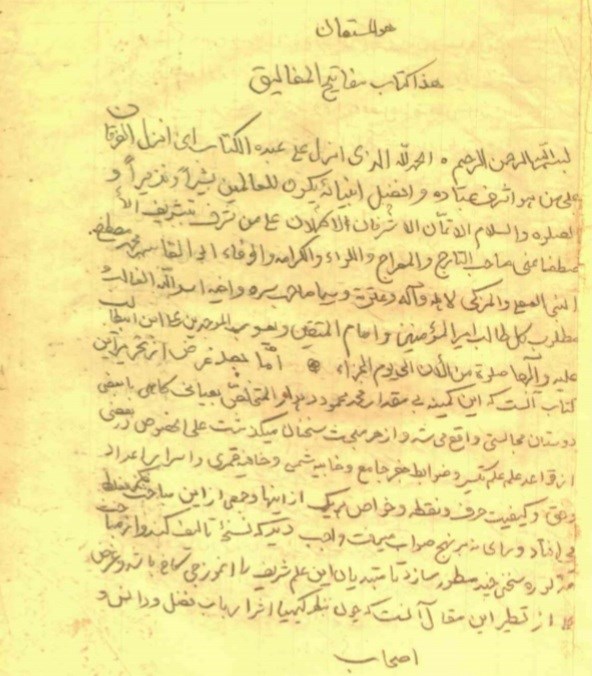 هو المستعان
هذا کتاب مفاتیح المغالیق
بسم الله الرحمن الرحیم الحمد لله الذی انزل علی عبده الکتاب ای انزل الفرقان
علی من هو اشرف عباده و افضل انبیائه لیکون للعالمین بشیرا و نذیرا و
الصلوة والسلام الاتمان الاشرفان الاکملان علی من شرف بتشریف الا
صطفا عنی صاحب التاج والمعراج واللواء والکرامة والوفاء ابی القاسم محمد مصطفی
النبی والمزکی وآله وعترته وسیما صاحب سره واخیه اسد الله الغالب
مطلوب کل طالب امیر المؤمنین و امام المتقین و یعسوب الموحدین علی ابن ابیطالب
علیه و آلهما صلوة من الآن الی یوم الجزاء اما بعد غرض از تحریر این
کتاب آنست که این کمینه بی مقدار محمد محمود دهدار المتخلص بعیانی گاهی با بعضی
دوستان مجالستی واقع می شد و از هر مبحث سخنان میگذشت علی الخصوص در بعضی
از قواعد علم تکسیر و ضوابط جفر جامع و خابیه شمسی و خافیه قمری و اسرار اعداد
وفق و کیفیت حرف و نقطه و خواص هر یک از اینها و جمعی از این مباحث
می افتاد و رای بر نهج صواب واجب دید که نسخه تالیف کند و از مباحث
مذکوره سخنی چند مسطور سازد تا مبتدیان این علم شریف را انموزجی باشد و غرض
از تسطیر این مقال آنست که چون نظر کیمیا اثر ارباب فضل و دانش و
اصحاب